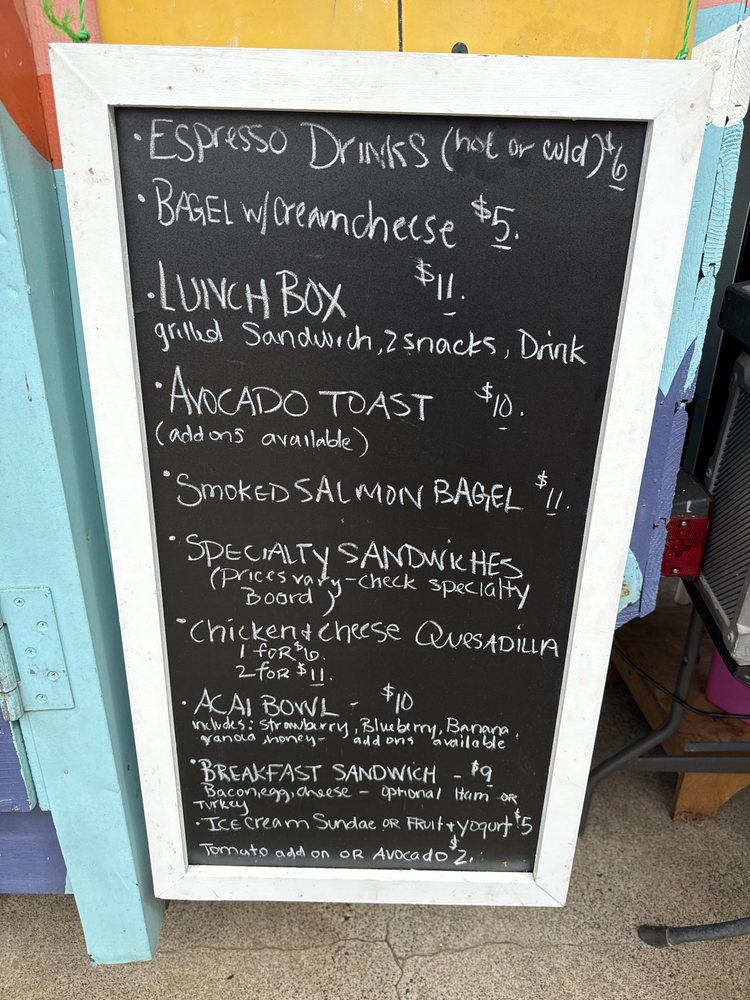 • Espresso Drinks (hot or cold) $6
• BAGEL w/creamcheese $5.
• LUNCH BOX $11.
grilled Sandwich, 2 snacks, Drink
• AVOCADO TOAST $10.
(add ons available)
• SMOKED SALMON BAGEL $11.
• SPECIALTY SANDWICHES
(Prices vary - check specialty
Board)
• Chicken + cheese QUESADILLA
1 for $6.
2 for $11.
• ACAI BOWL - $10
includes: Strawbarry, Blueberry, Banana,
granola, honey - add ons available
• BREAKFAST SANDWICH - $9
Bacon, egg, cheese - optional Ham OR
Turkey
• ICE cream Sundae OR FRUIT + yogurt $5
Tomato add on OR Avocado $2.